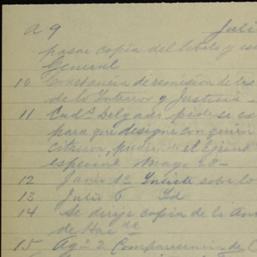 A 9 Juli
pasar copia del libelo y
General
10 Constancia de remisión de las
de lo Interior y Justicia
11 Cud.º Delgado pide se es
para que designe con
citarse, pueda el
especial Mayo 28 -
12 Junio 1º Insiste sobre lo
13 Julio 6 Id
14 Se dirije copia de la
de Hac
15 Agº 2. Comparecencia de